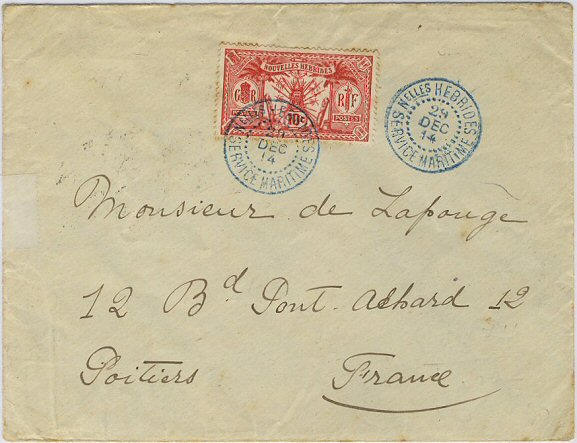 NOUVELLES HEBRIDES
G R
R F
10c
POSTES
29
DEC
14
SERVICE MARITIME
NELLES HEBRIDES
29
DEC
14
SERVICE MARITIME
Monsieur de Lapouge
12 Bd Pont-Achard 12
Poitiers France